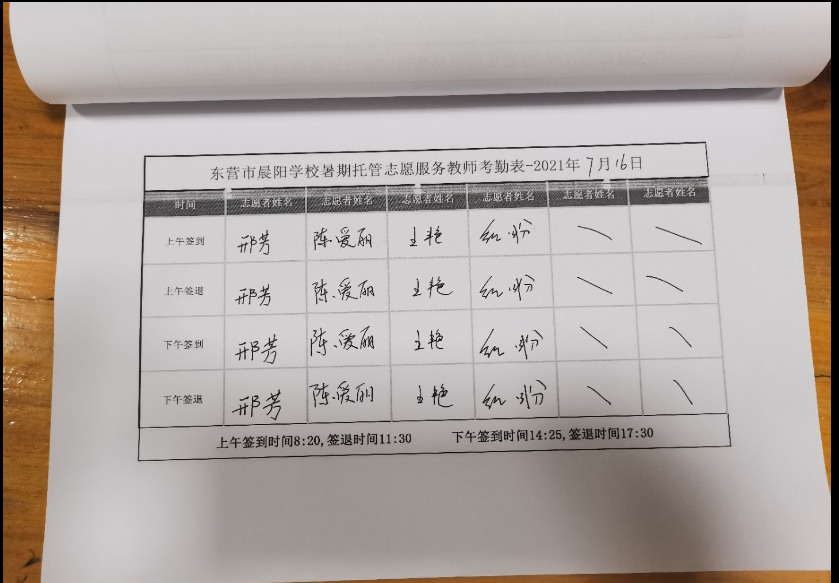 东营市晨阳学校暑期托管志愿服务教师考勤表-2021年7月16日
时间 志愿者姓名 志愿者姓名 志愿者姓名 志愿者姓名 志愿者姓名 志愿者姓名
上午签到 邢芳 陈爱丽 王艳
上午签退 邢芳 陈爱丽 王艳
下午签到 邢芳 陈爱丽 王艳
下午签退 邢芳 陈爱丽 王艳
上午签到时间8:20,签退时间11:30 下午签到时间14:25,签退时间17:30